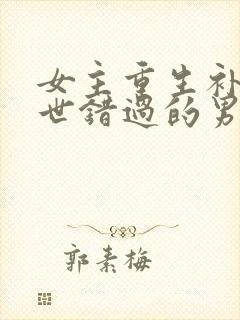 女主重生补
世错过的男
郭素梅